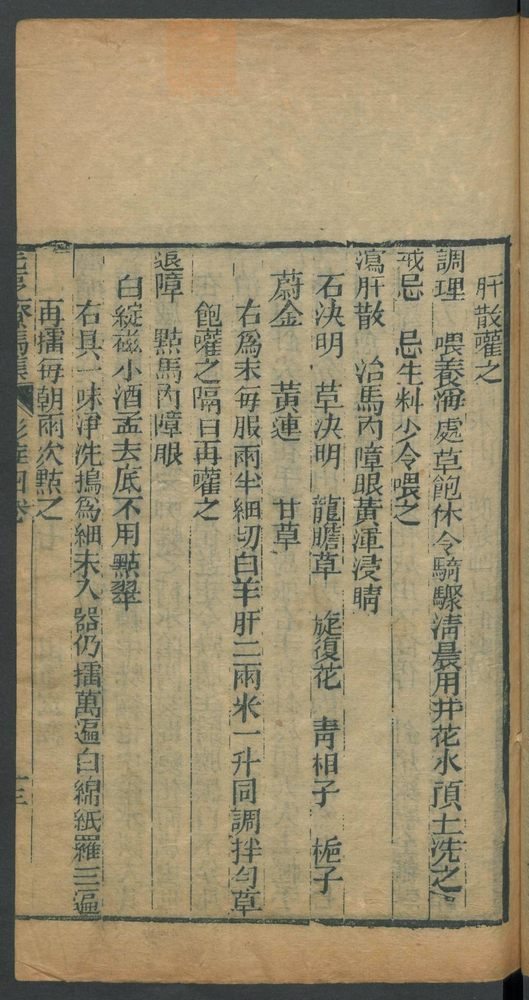 肝散嚾之
調理 喂養海處草飽休令騎驟淸晨用井花水頂上洗之
戒忌 忌生料少令喂之
瀉肝散 治馬內障眼黃渾浸睛
石決明 草決明 龍膽草 旋復花 靑相子 梔子
蔚金 黃連 甘草
右爲末每服兩半細切白羊肝二兩米一升同調拌勻草
飽嚾之隔日再嚾之
退障 點馬內障眼
白綻磁小酒盃去底不用點翠
右具一味淨洗搗爲細末入器仍擂萬遍白綿紙羅三遍
再擂每朝兩次點之
元亨療馬集 卷 十三